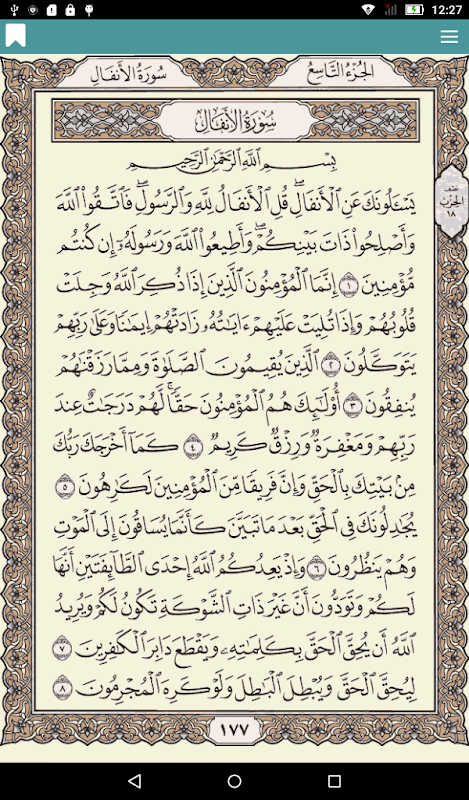 12:27
الجُزْءُ التَّاسِعُ
سُورَةُ الأَنفَالِ
سُورَةُ الأَنفَالِ
بِسْمِ اللَّهِ الرَّحْمَٰنِ الرَّحِيمِ
يَسْـَٔلُونَكَ عَنِ الْأَنفَالِ ۖ قُلِ الْأَنفَالُ لِلَّهِ وَالرَّسُولِ ۖ فَاتَّقُوا اللَّهَ
وَأَصْلِحُوا ذَاتَ بَيْنِكُمْ ۖ وَأَطِيعُوا اللَّهَ وَرَسُولَهُ إِن كُنتُم
مُّؤْمِنِينَ ١ إِنَّمَا الْمُؤْمِنُونَ الَّذِينَ إِذَا ذُكِرَ اللَّهُ وَجِلَتْ
قُلُوبُهُمْ وَإِذَا تُلِيَتْ عَلَيْهِمْ ءَايَٰتُهُ زَادَتْهُمْ إِيمَٰنًا وَعَلَىٰ رَبِّهِمْ
يَتَوَكَّلُونَ ٢ الَّذِينَ يُقِيمُونَ الصَّلَوٰةَ وَمِمَّا رَزَقْنَٰهُمْ
يُنفِقُونَ ٣ أُولَٰئِكَ هُمُ الْمُؤْمِنُونَ حَقًّا ۚ لَّهُمْ دَرَجَٰتٌ عِندَ
رَبِّهِمْ وَمَغْفِرَةٌ وَرِزْقٌ كَرِيمٌ ٤ كَمَا أَخْرَجَكَ رَبُّكَ
مِن بَيْتِكَ بِالْحَقِّ وَإِنَّ فَرِيقًا مِّنَ الْمُؤْمِنِينَ لَكَٰرِهُونَ ٥
يُجَٰدِلُونَكَ فِي الْحَقِّ بَعْدَ مَا تَبَيَّنَ كَأَنَّمَا يُسَاقُونَ إِلَى الْمَوْتِ
وَهُمْ يَنظُرُونَ ٦ وَإِذْ يَعِدُكُمُ اللَّهُ إِحْدَى الطَّائِفَتَيْنِ أَنَّهَا
لَكُمْ وَتَوَدُّونَ أَنَّ غَيْرَ ذَاتِ الشَّوْكَةِ تَكُونُ لَكُمْ وَيُرِيدُ
اللَّهُ أَن يُحِقَّ الْحَقَّ بِكَلِمَٰتِهِ وَيَقْطَعَ دَابِرَ الْكَٰفِرِينَ ٧
لِيُحِقَّ الْحَقَّ وَيُبْطِلَ الْبَٰطِلَ وَلَوْ كَرِهَ الْمُجْرِمُونَ ٨
نصف
الحزب
١٨
١٧٧